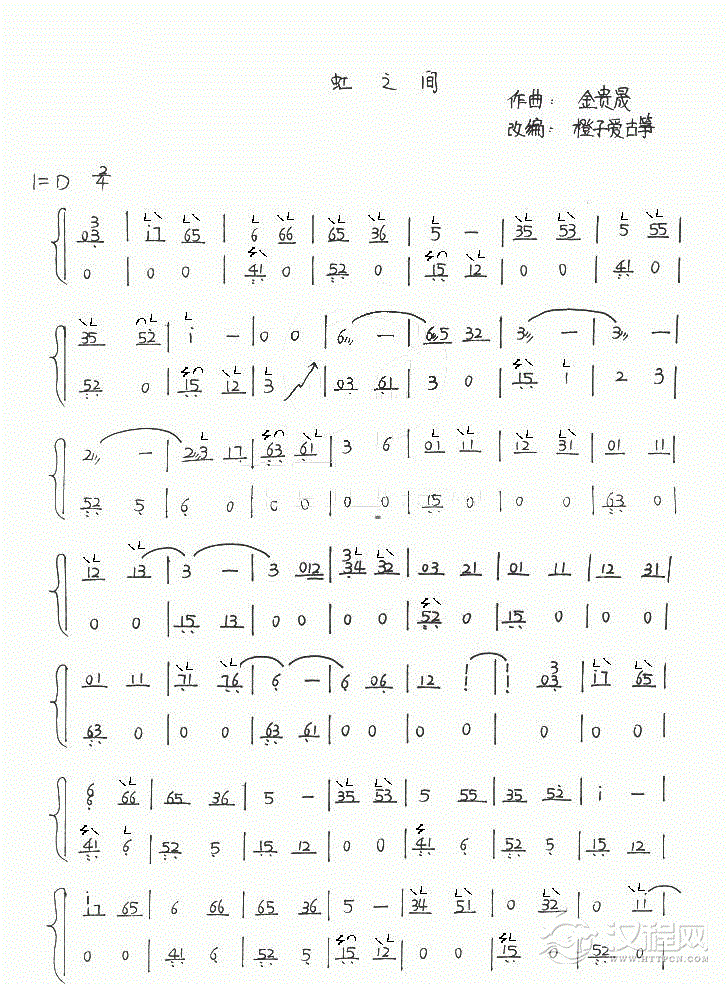 虹 之 间
作曲: 金贵晟
改编: 橙子爱古筝
1=D 2/4
03 | i7 65 | 6 66 | 65 36 | 5 — | 35 53 | 5 55 |
0 0 | 0 0 | 41 0 | 52 0 | 15 12 | 0 0 | 41 0 |
35 52 | i — | 0 0 | 6 — | 6.5 32 | 3 — | 3 — |
52 0 | 15 12 | 3 | 03 61 | 3 0 | 15 1 | 2 3 |
2 — | 2.3 17 | 63 61 | 3 6 | 01 11 | 12 31 | 01 11 |
52 5 | 6 0 | 0 0 | 0 0 | 15 0 | 0 0 | 63 0 |
12 13 | 3 — | 3 012 | 34 32 | 03 21 | 01 11 | 12 31 |
0 0 | 15 13 | 0 0 | 0 0 | 52 0 | 15 0 | 0 0 |
01 11 | 71 76 | 6 — | 6 06 | 12 i | i 03 | i7 65 |
63 0 | 0 0 | 63 61 | 0 0 | 0 0 | 0 0 | 0 0 |
6 66 | 65 36 | 5 — | 35 53 | 5 55 | 35 52 | i — |
41 6 | 52 5 | 15 12 | 0 0 | 41 6 | 52 5 | 15 12 |
i7 65 | 6 66 | 65 36 | 5 — | 34 51 | 0 32 | 0 11
0 0 | 41 6 | 52 5 | 15 12 | 0 0 | 15 0 | 52 0 |
汉程网
HTTPCN.COM